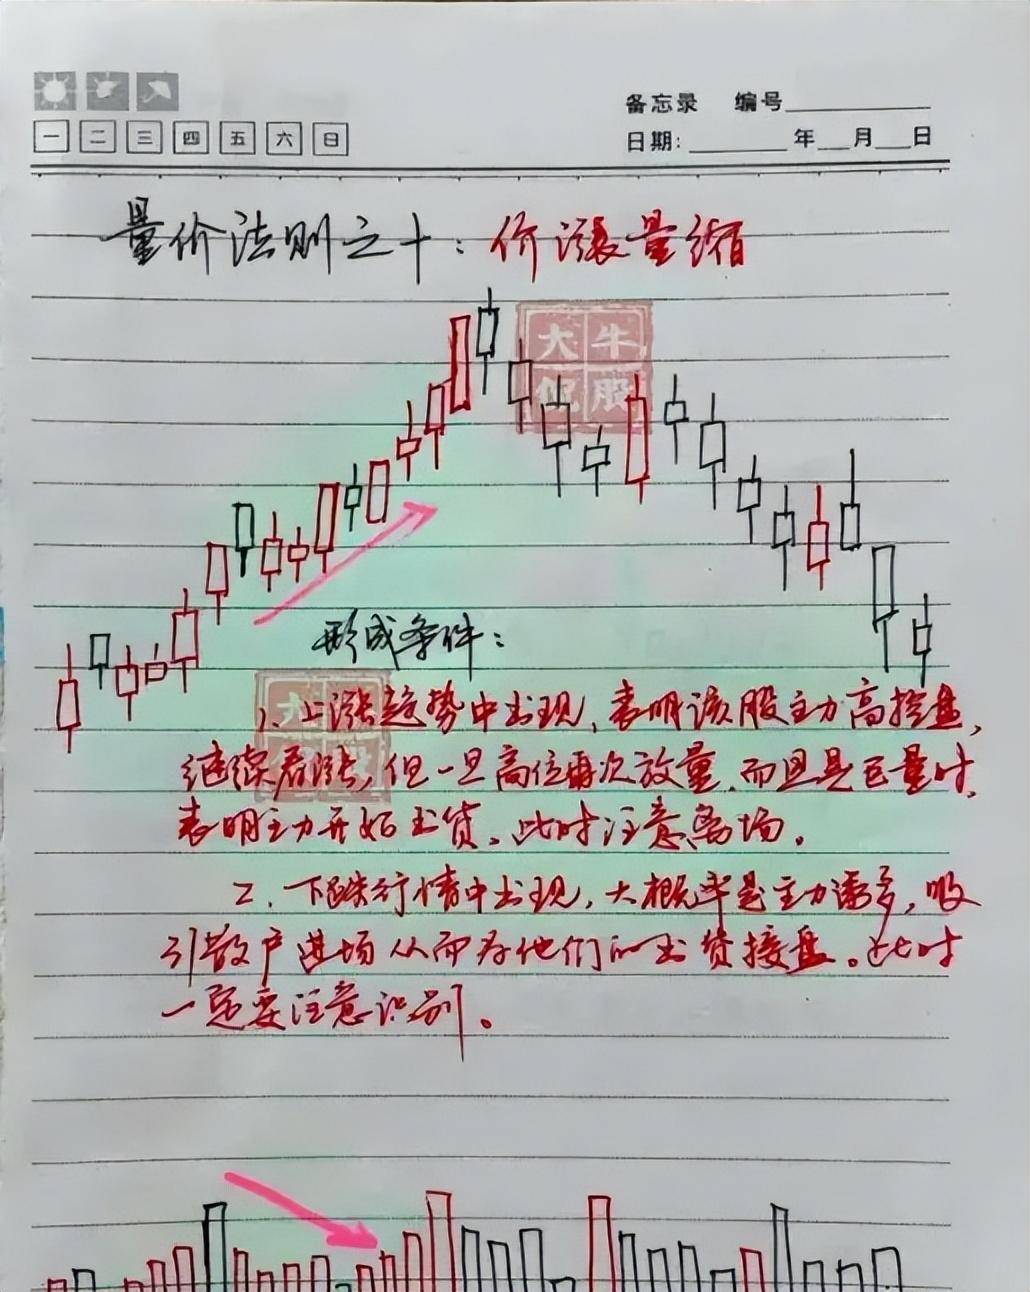 备忘录 编号
一 二 三 四 五 六 日
日期: 年 月 日
量价法则之十：价涨量缩
大牛
侃股
形成条件：
大牛
侃股
1、上涨趋势中出现，表明该股主力高控盘，
继续看涨，但一旦高位再次放量，而且是巨量时，
表明主力开始出货。此时注意离场。
2、下跌行情中出现，大概率是主力诱多，吸
引散户进场从而为他们的出货接盘。此时
一定要注意识别。